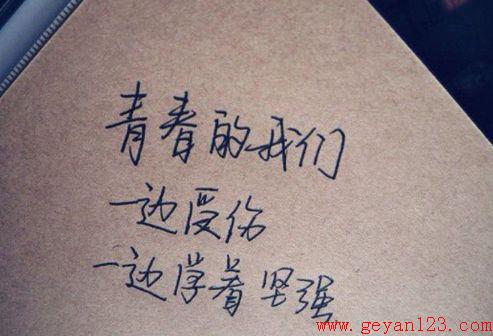 青春的我们
一边受伤
一边学着坚强
www.geyan123.com